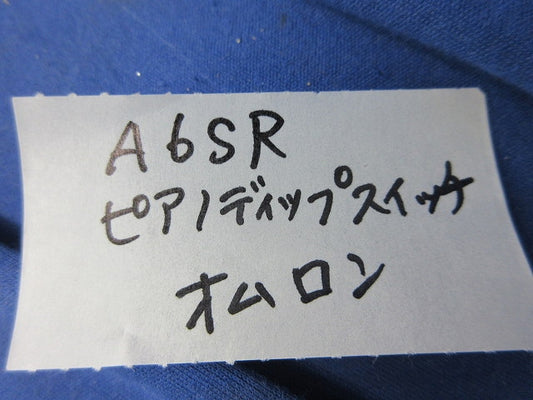 A6SR
ピアノディップスイッチ
オムロン